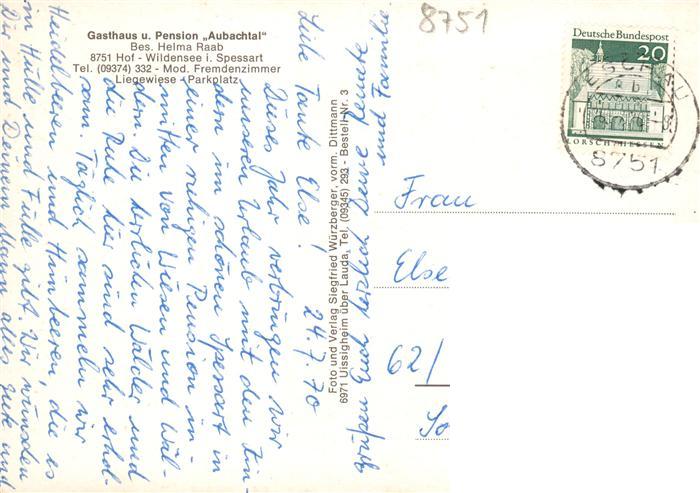 Gasthaus u. Pension „Aubachtal"
Bes. Helma Raab
8751 Hof - Wildensee i. Spessart
Tel. (09374) 332 - Mod. Fremdenzimmer
Liegewiese - Parkplatz
24.7.70
Liebe Tante Else!
Dieses Jahr verbringen wir
unseren Urlaub mit den Kin-
dern im schönen Spessart in
einer ruhigen Pension in-
mitten von Wiesen und Wäl-
dern. Die herrlichen Wälder und
die Ruhe hier sind sehr erhol-
sam. Täglich sammeln wir
Heidelbeeren und Himbeeren, die es
in Hülle und Fülle gibt. Wir wünschen
Dir und Deinem Mann alles Gute und
grüßen Euch herzlich Deine Renate
und Familie.
Foto und Verlag Siegfried Würzberger, vorm. Dittmann
6971 Uissigheim über Lauda, Tel. (09345) 293 - Bestell-Nr. 3
8751
Deutsche Bundespost
20
LORSCH/HESSEN
8751
b
Frau
Else
62/